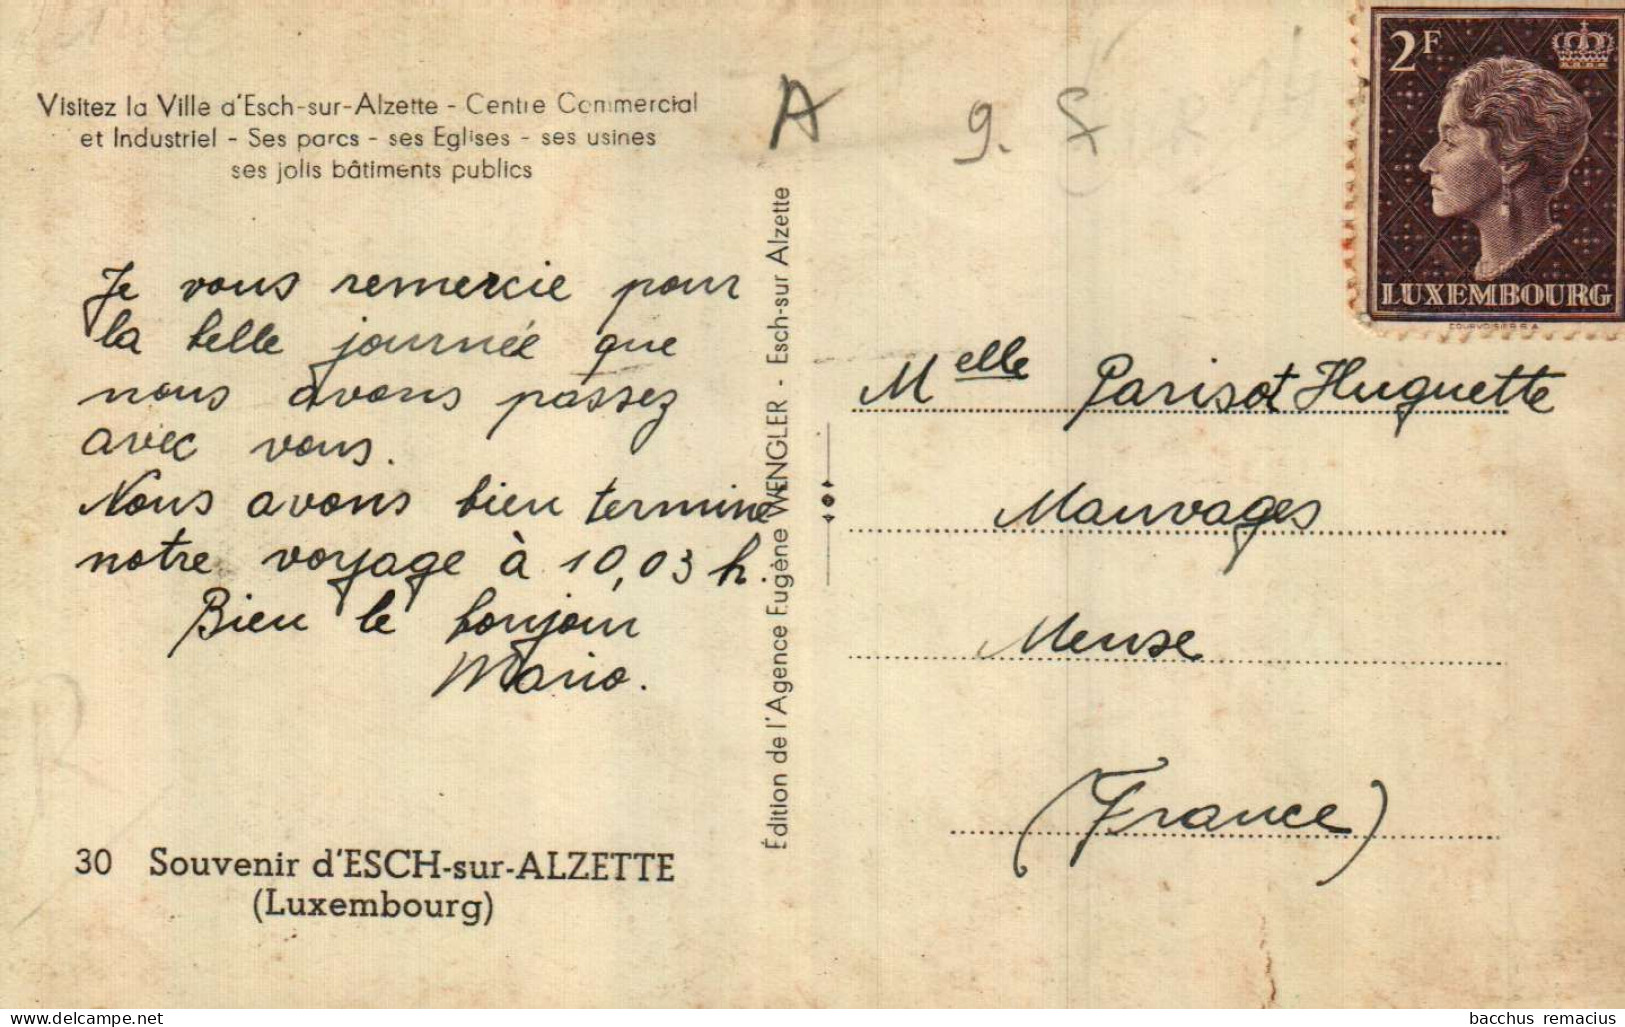 Visitez la Ville d'Esch-sur-Alzette - Centre Commercial
et Industriel - Ses parcs - ses Eglises - ses usines
ses jolis bâtiments publics
Je vous remercie pour
la belle journée que
nous avons passez
avec vous.
Nous avons bien terminé
notre voyage à 10,03 h.
Bien le bonjour
Mario.
30 Souvenir d'ESCH-sur-ALZETTE
(Luxembourg)
Édition de l'Agence Eugène WENGLER - Esch-sur Alzette
A
9.
2F
LUXEMBOURG
COURVOISIER S.A.
Melle Parisot Huguette
Mauvages
Meuse
(France)
bacchus remacius